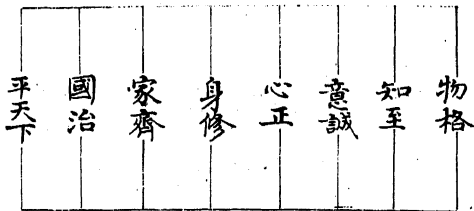 物格
知至
意誠
心正
身修
家齊
國治
平天下